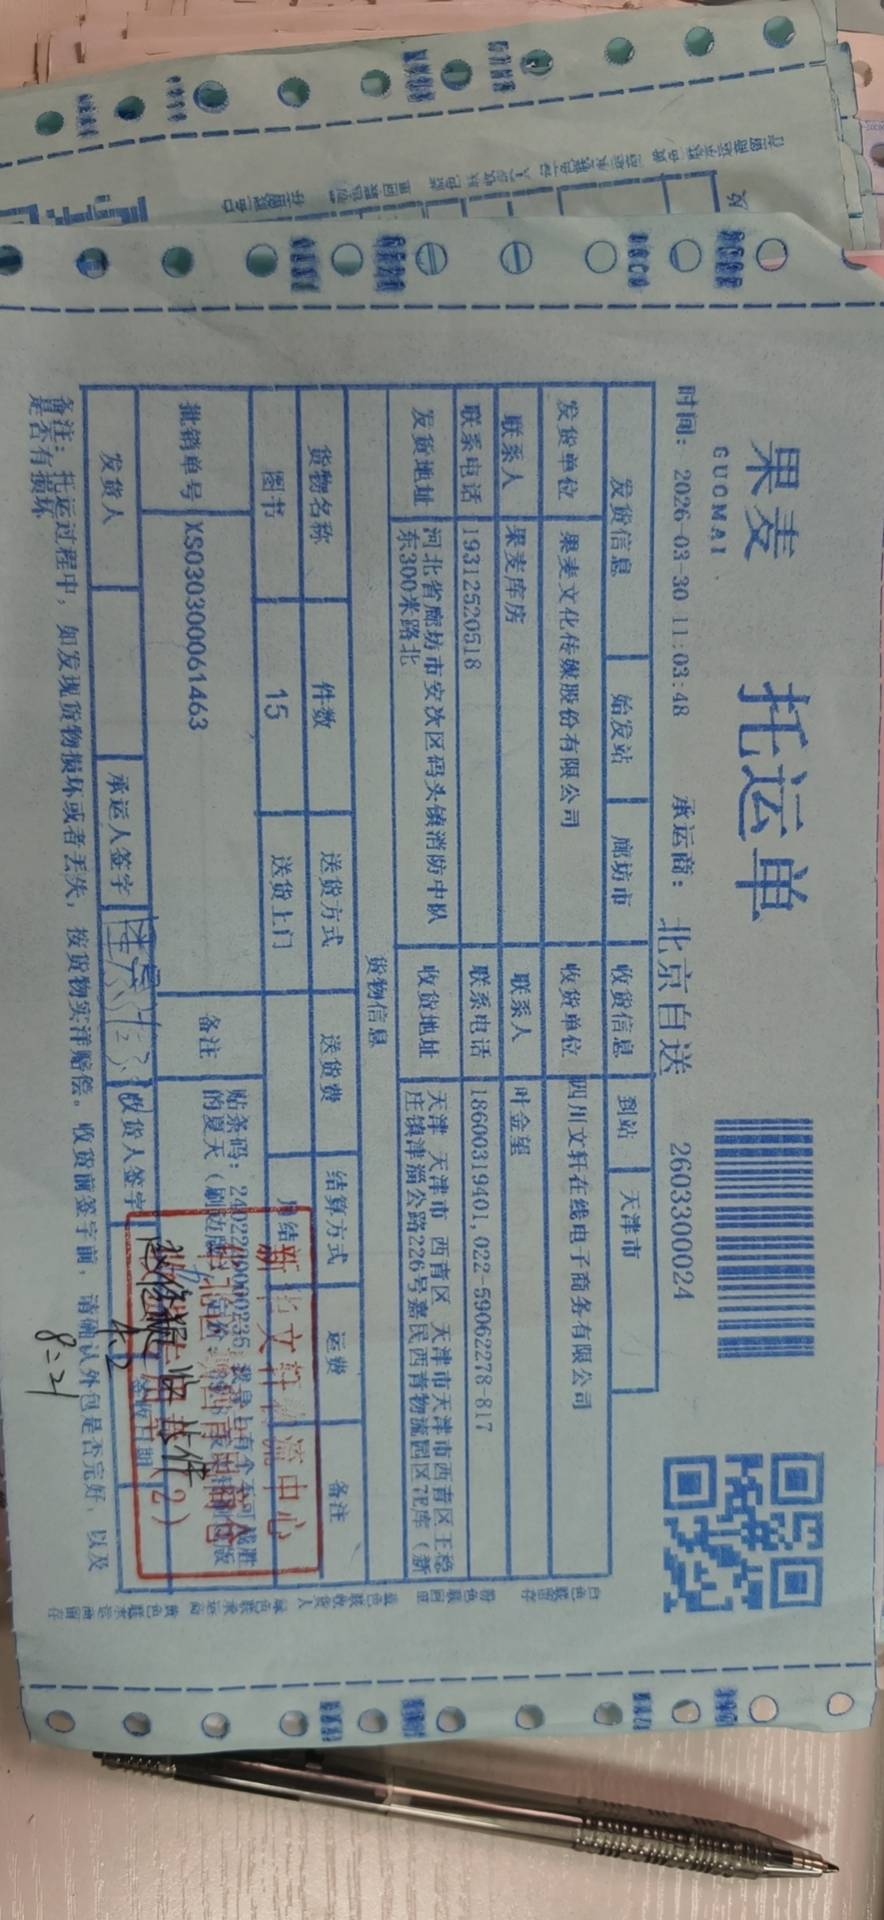 果麦
GUOMAI
托运单
时间: 2026-03-30 11:03:48 承运商: 北京自送 2603300024
发货信息 始发站 廊坊市 收货信息 到站 天津市
发货单位 果麦文化传媒股份有限公司 收货单位 四川文轩在线电子商务有限公司
联系人 果麦库房 联系人 叶金望
联系电话 19312520518 联系电话 18600319401,022-59062278-817
发货地址 河北省廊坊市安次区码头镇消防中队东300米路北 收货地址 天津 天津市 西青区 天津市天津市西青区王稳庄镇津淄公路226号嘉民西青物流园区7E库（新
货物信息
货物名称 件数 送货方式 送货费 结算方式 运费 备注
图书 15 送货上门 月结
批销单号 XS030300061463 备注 贴条码:
的夏天
发货人 承运人签字 收货人签字 签收日期
新华文轩物流中心
(2)
8:21
备注: 托运过程中, 如发现货物损坏或者丢失, 按货物实洋赔偿。收货前签字前, 请确认外包是否完好, 以及
是否有损坏